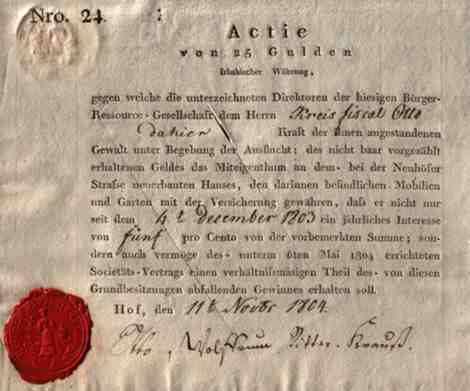 Nro. 24.
Actie
von 25 Gulden
fränkischer Währung,
gegen welche die unterzeichneten Direktoren der hiesigen Bürger-
Ressource-Gesellschaft dem Herrn Kreis fiscal Otto
dahier Kraft der ihnen zugestandenen
Gewalt unter Begebung der Ausflucht; des nicht baar vorgezählt
erhaltenen Geldes das Miteigenthum an dem- bei der Neuhöfer
Strafse neuerbauten Hauses, den darinnen befindlichen Mobilien
und Garten mit der Versicherung gewähren, dafs er nicht nur
seit dem 4t December 1803 ein jährliches Interesse
von fünf pro Cento von der vorbemerkten Summe; son-
dern auch vermöge des- unterm 6ten Mai 1804 errichteten
Societäts-Vertrags einen verhältnismäsigen Theil des- von diesen
Grundbesitzungen abfallenden Gewinnes erhalten soll.
Hof, den 11t Novbr 1804.
Otto, Ritter. Krauß.